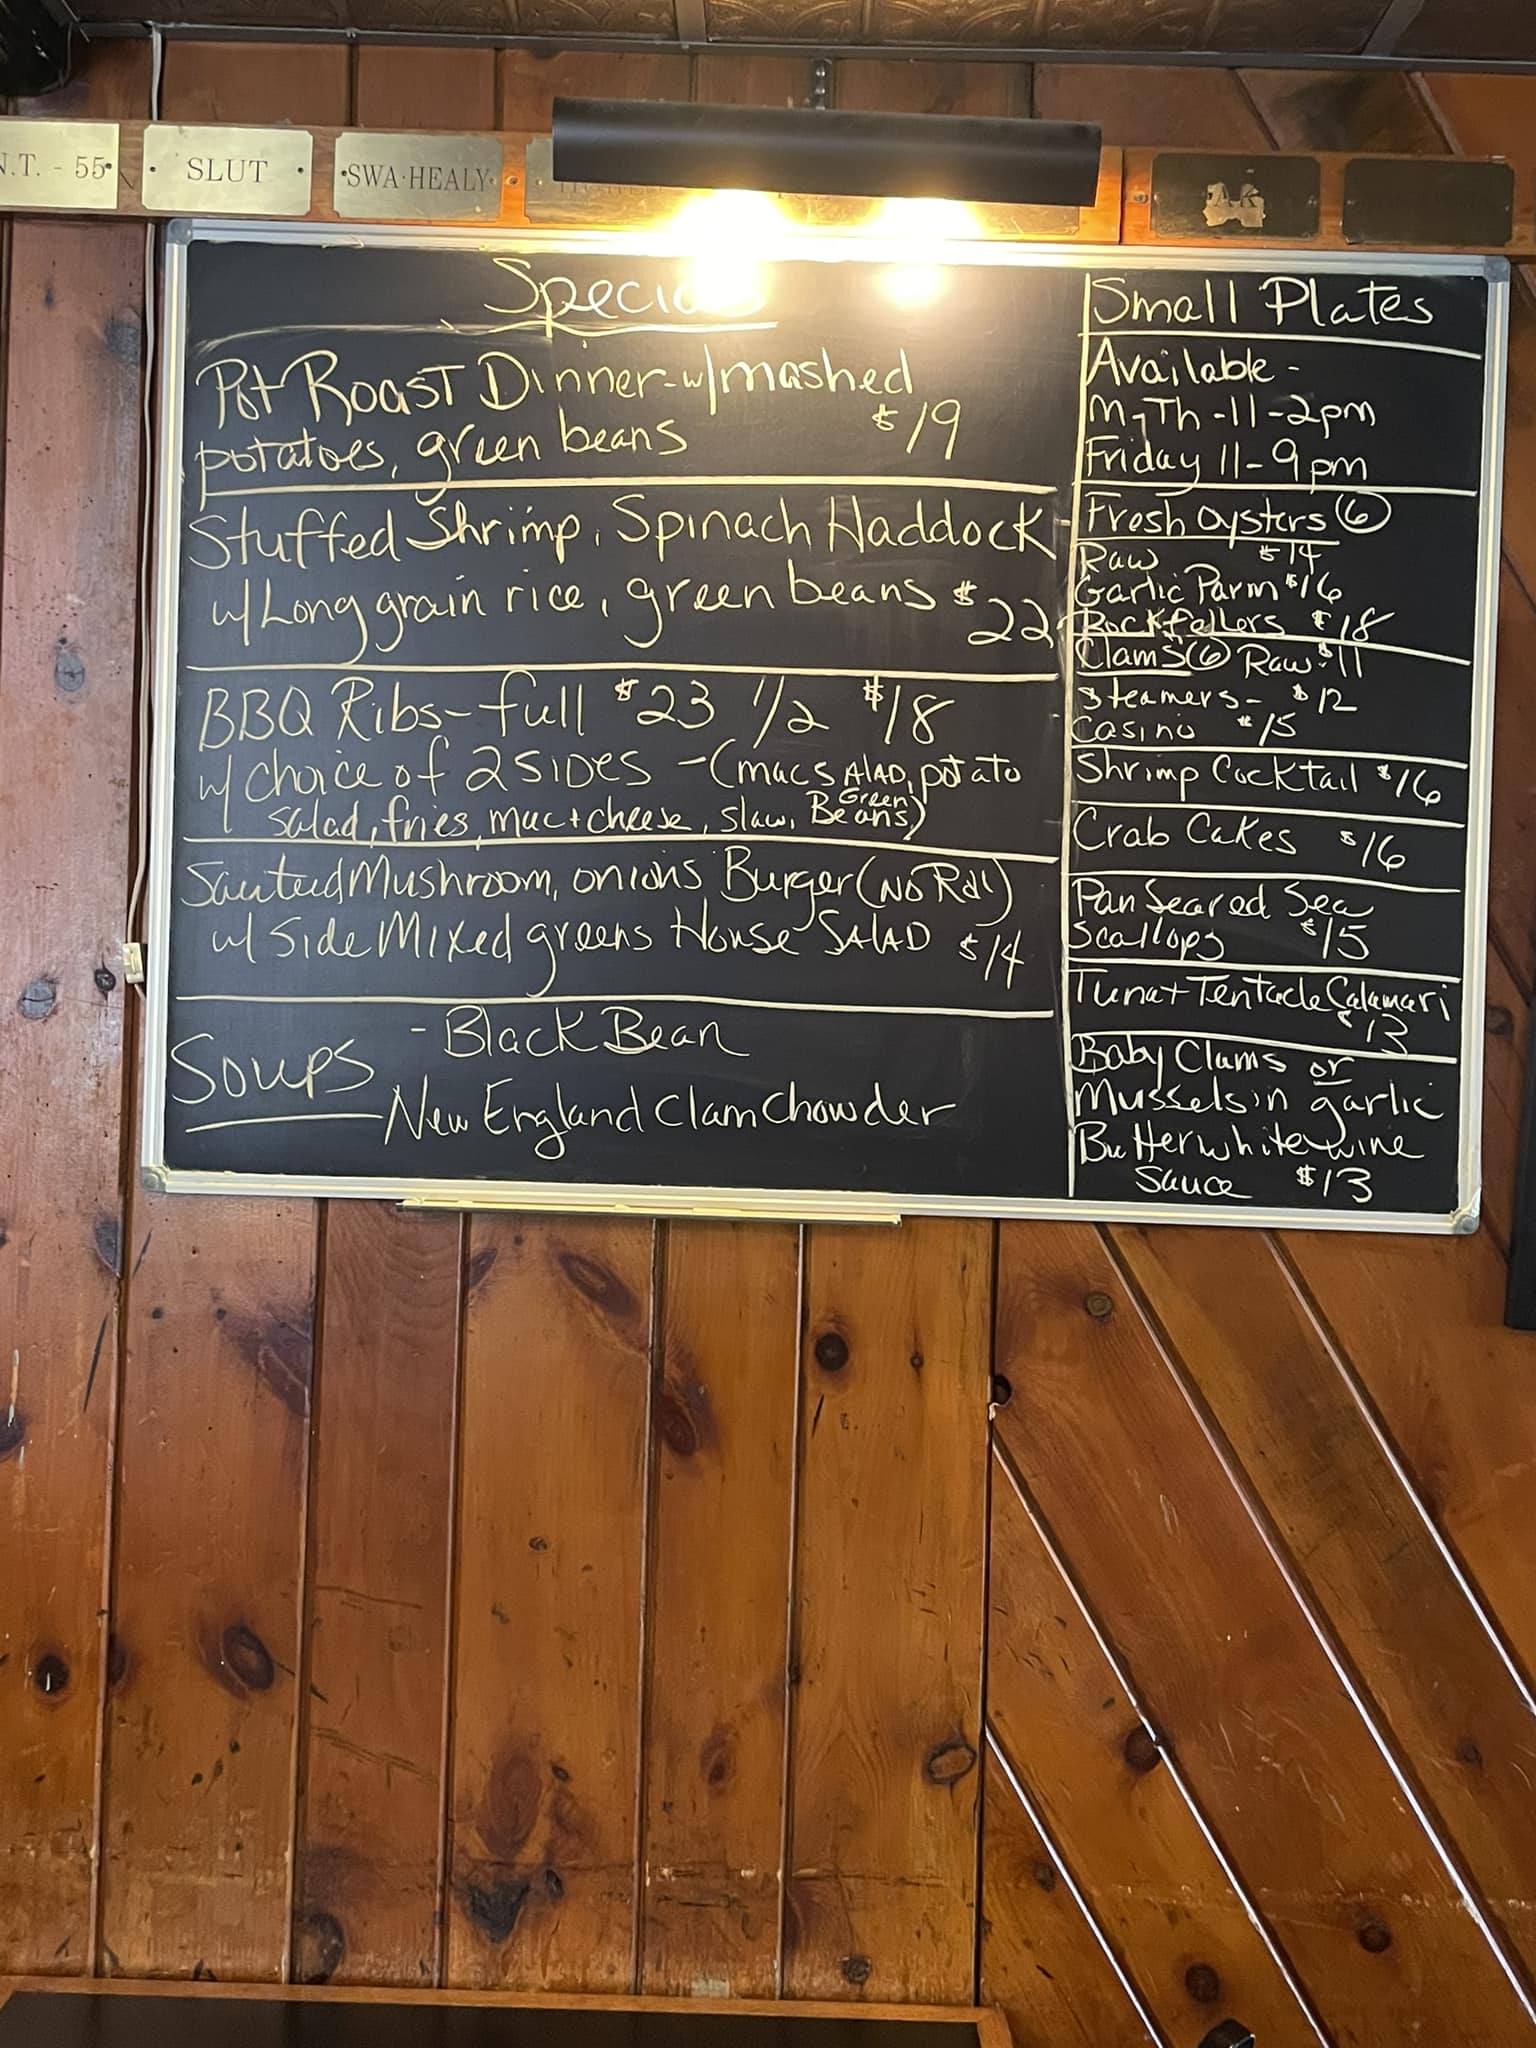 N.T. - 55
SLUT
SWA·HEALY
A K
Specials
Pot Roast Dinner - w/ mashed
potatoes, green beans $19
Stuffed Shrimp, Spinach Haddock
w/ Long grain rice, green beans $22
BBQ Ribs - full $23 1/2 $18
w/ choice of 2 SIDES - (mac SALAD, potato
salad, fries, mac + cheese, slaw, Green Beans)
Sauteed Mushroom, onions Burger (NO Roll)
w/ Side Mixed greens House SALAD $14
Soups
- Black Bean
New England Clam Chowder
Small Plates
Available -
M-Th - 11 - 2pm
Friday 11 - 9pm
Fresh Oysters (6)
Raw $14
Garlic Parm $16
Rockfellers $18
Clams (6) Raw - $11
Steamers - $12
Casino $15
Shrimp Cocktail $16
Crab Cakes $16
Pan Seared Sea
Scallops $15
Tuna + Tentacle Calamari
$13
Baby Clams or
Mussels in garlic
Butter white wine
Sauce $13